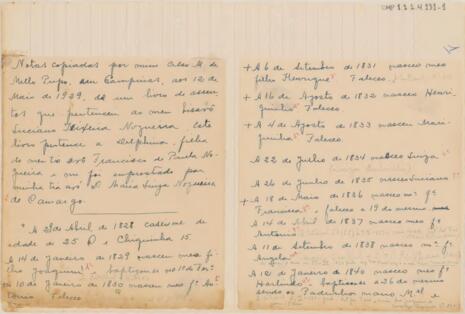 CMP 1.2.4.231-1
Notas copiadas por mim Celso M. de
Mello Pupo, em Campinas, aos 12 de
Maio de 1929, de um livro de assen-
tos que pertenceu ao meu bisavô
Luciano Teixeira Nogueira. Este
livro pertence a Delphina, filha
do meu tio avô Francisco de Paula No-
gueira e me foi emprestado por
minha tia avó D. Maria Luiza Nogueira
de Camargo.
A 2 de Abril de 1828 casei-me
de edade de 25 e Chiquinha 15
A 14 de Janeiro de 1829 nasceu meu fi-
lho Joaquim baptisou-se no 1º de Fev.
+ 10 de Janeiro de 1830 nasceu meu fº An-
tonio Faleceo
+ A 6 de Setembro de 1831 nasceo meo
filho Henrique Faleceo.
+ A 16 de Agosto de 1832 nasceo Henri-
quinha Faleceo
+ A 4 de Agosto de 1833 nasceu Mari-
quinha Faleceo.
A 22 de Julho de 1834 nasceo Luiza
A 26 de Junho de 1835 nasceo Luciano
+ A 18 de Maio de 1836 nasceo mª fª
Francisca, faleceo a 19 do mesmo mes
A 14 de Abril de 1837 nasceo meo fº
Antonio
A 11 de Setembro de 1838 nasceo mª fª
Angela
A 12 de Janeiro de 1840 nasceo meo fº
Harlindo Baptisou-se a 26 do mesmo
sendo os Padrinhos mano Mel e